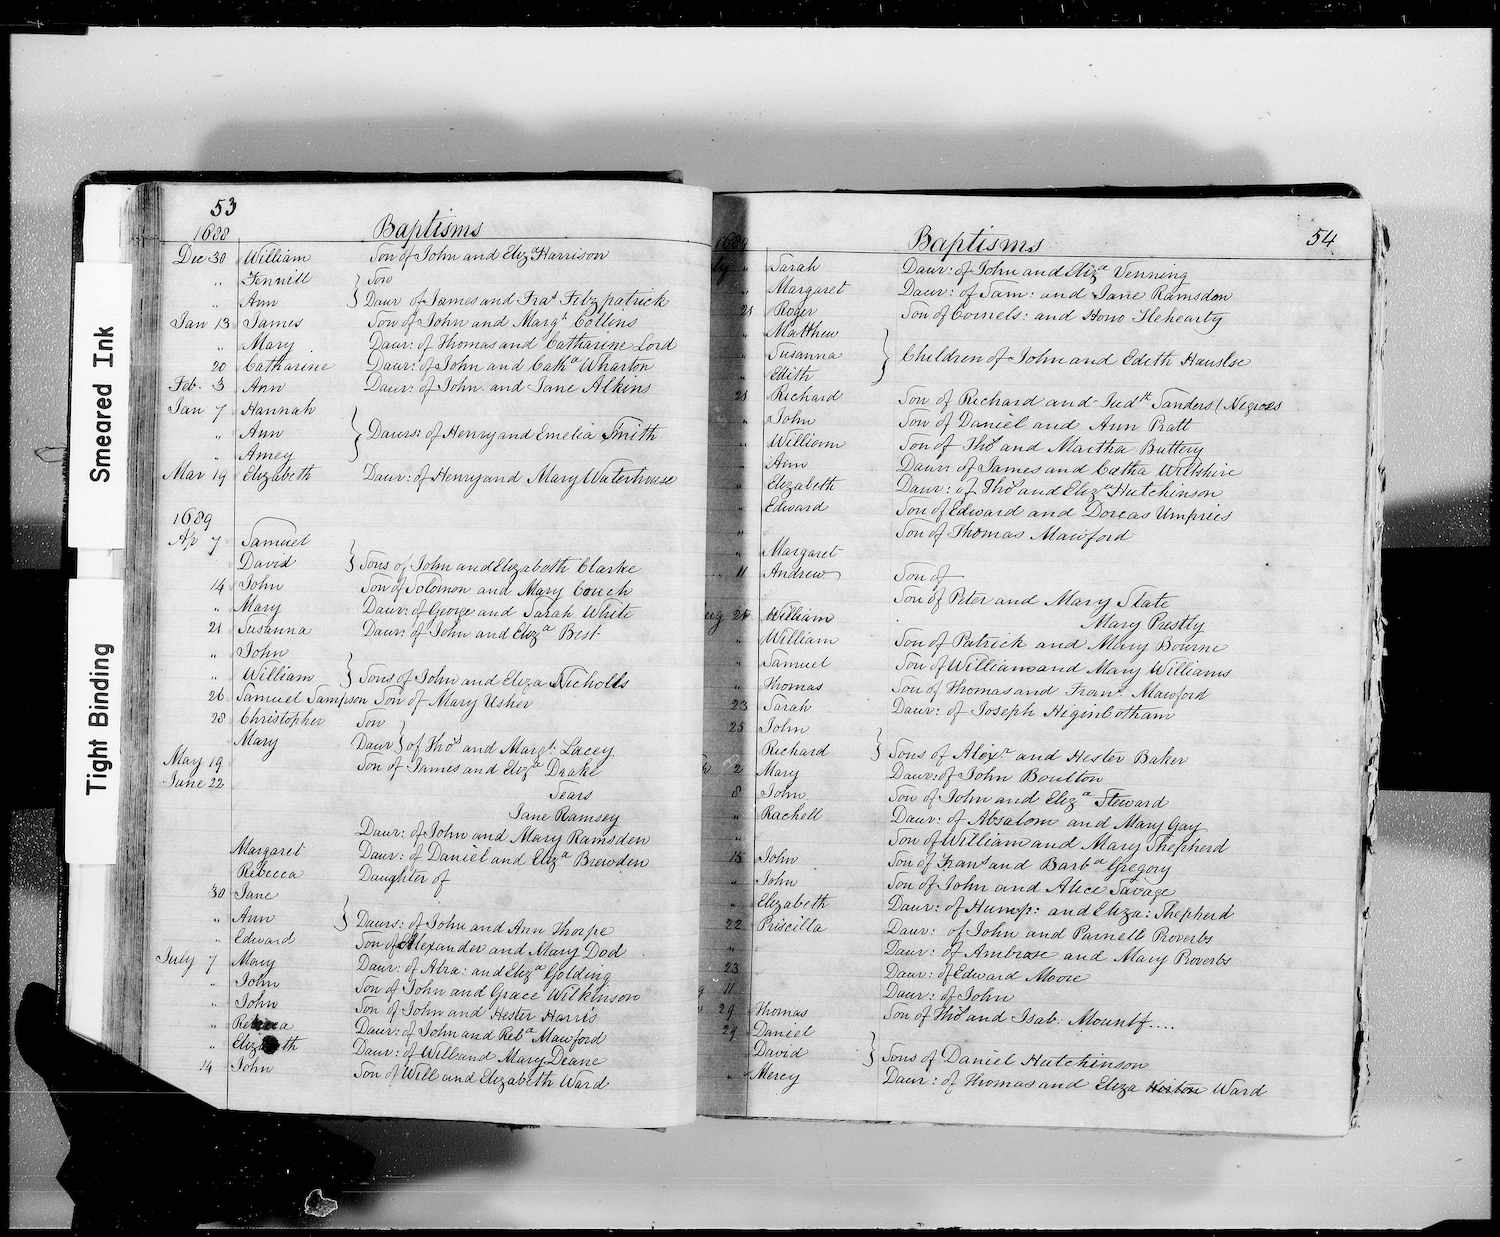 Smeared Ink
Tight Binding
53
1688
Baptisms
Dec 30 William Son of John and Eliza Harrison
" Fennill } Son
" Ann } Daur of James and Fras Fitzpatrick
Jan 13 James Son of John and Margt Collins
" Mary Daur: of Thomas and Catharine Lord
20 Catharine Daur: of John and Catha Wharton
Feb. 3 Ann Daur: of John and Jane Alkins
Jan 7 Hannah
" Ann } Daurs: of Henry and Emelia Smith
" Amey
Mar 19 Elizabeth Daur: of Henry and Mary Waterhouse
1689
Ap 7 Samuel
David } Sons of John and Elizabeth Clarke
14 John Son of Solomon and Mary Couch
" Mary Daur: of George and Sarah White
21 Susanna Daur: of John and Eliza Best
" John
" William } Sons of John and Eliza Nicholls
26 Samuel Sampson Son of Mary Usher
28 Christopher Son
Mary Daur } of Thos and Margt: Lacey
May 19 Son of James and Eliza Drake
June 22
Sears
Jane Ramsey
Daur: of John and Mary Ramsden
Margaret Daur: of Daniel and Eliza Brewden
Rebecca Daughter of
30 Jane
" Ann } Daurs: of John and Ann Thorpe
" Edward Son of Alexander and Mary Dod
July 7 Mary Daur: of Abra: and Eliza Golding
" John Son of John and Grace Wilkinson
" John Son of John and Hester Harris
" Rebecca Daur: of John and Reba Mawford
" Elizabeth Daur: of Will and Mary Deane
14 John Son of Will and Elizabeth Ward
54
1689
Baptisms
" Sarah Daur: of John and Eliza Venning
" Margaret Daur: of Sam: and Jane Ramsden
21 Roger Son of Cornels: and Hono Ilehearty
" Matthew
" Susanna } Children of John and Edith Hawlse
" Edith
21 Richard Son of Richard and Judth Sanders ( Negroes
" John Son of Daniel and Ann Pratt
" William Son of Tho and Martha Buttery
" Ann Daur: of James and Catha Wiltshire
" Elizabeth Daur: of Tho and Eliza Hutchinson
" Edward Son of Edward and Dorcas Umpries
" Son of Thomas Mawford
" Margaret
11 Andrew Son of
Son of Peter and Mary State
Aug 21 William Mary Pustly
" William Son of Patrick and Mary Bourne
" Samuel Son of William and Mary Williams
" Thomas Son of Thomas and Frans Mawford
23 Sarah Daur: of Joseph Higinbotham
25 John
Richard } Sons of Alexr and Hester Baker
2 Mary Daur: of John Boulton
8 John Son of John and Eliza Steward
" Rachell Daur: of Absalom and Mary Gay
" Son of William and Mary Shepherd
15 John Son of Frans and Barba Gregory
" John Son of John and Alice Savage
" Elizabeth Daur: of Hump: and Eliza: Shepherd
22 Priscilla Daur: of John and Parnell Proverbs
" Daur: of Ambrose and Mary Proverbs
23 Daur: of Edward Moore
11 Daur: of John
29 Thomas Son of Tho and Isab: Mount f....
29 Daniel
David } Sons of Daniel Hutchinson
" Mercy Daur: of Thomas and Eliza Ward